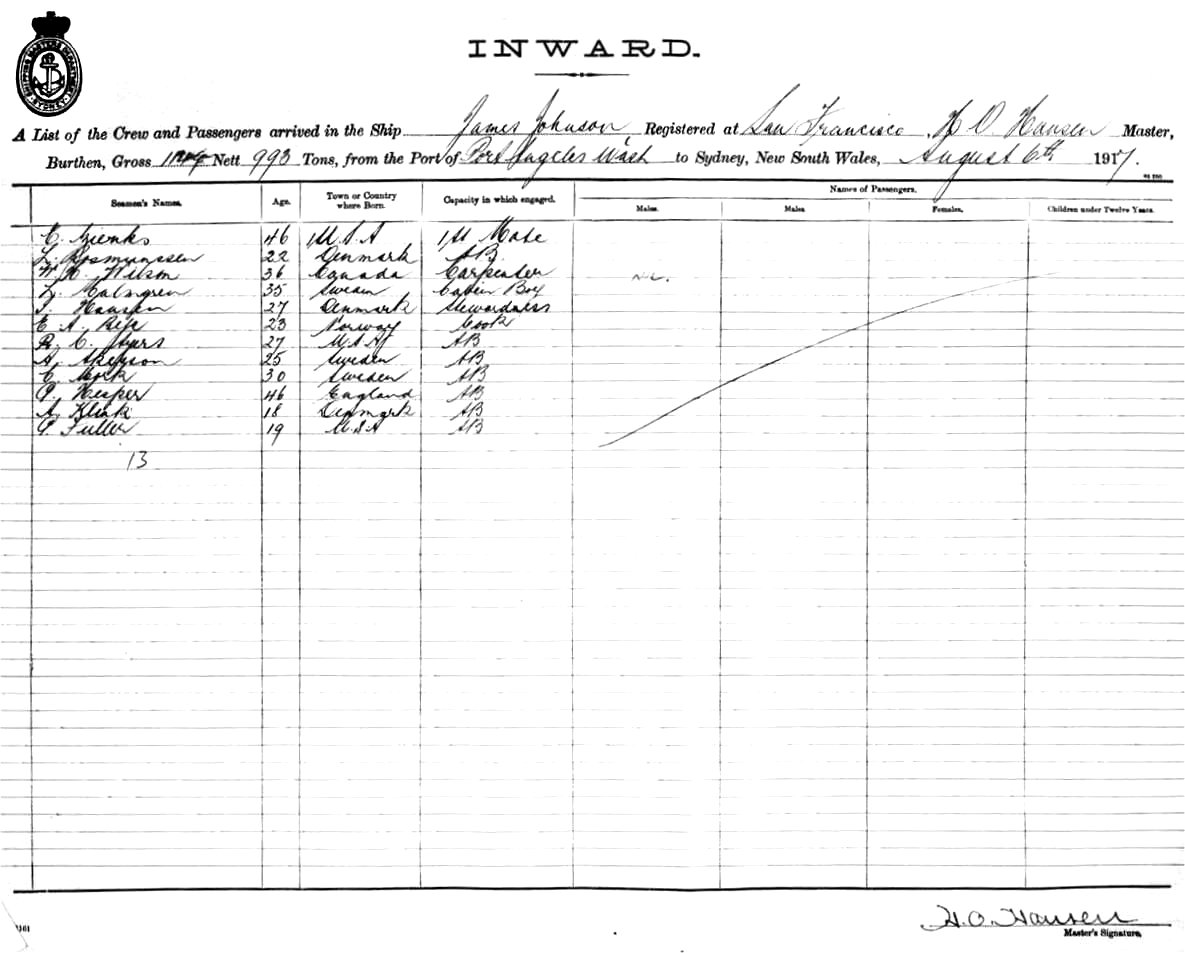 SHIPPING MASTERS DEPARTMENT SYDNEY
INWARD.
A List of the Crew and Passengers arrived in the Ship James Johnson, Registered at San Francisco, H O Hansen Master,
Burthen, Gross Nett 993 Tons, from the Port of Port Angeles Wash to Sydney, New South Wales, August 6th 1917.
Seamen's Names. Age. Town or Country where Born. Capacity in which engaged. Names of Passengers.
Males. Males. Females. Children under Twelve Years.
E. 46 U.S.A 1st Mate
L. Rosmunssen 22 Denmark AB
W. H. Wilson 36 Canada Carpenter Nil.
L. Malmgren 35 Sweden Cabin Boy
Hansen 27 Denmark Stewardness
E. A. 23 Norway Cook
R. C. Ayers 27 U.S.A AB
A. 25 Sweden AB
C. Mork 30 Sweden AB
P. Hesper 46 England AB
A. Klink 18 Denmark AB
Fuller 19 U.S.A AB
13
H.O. Hansen
Master's Signature.